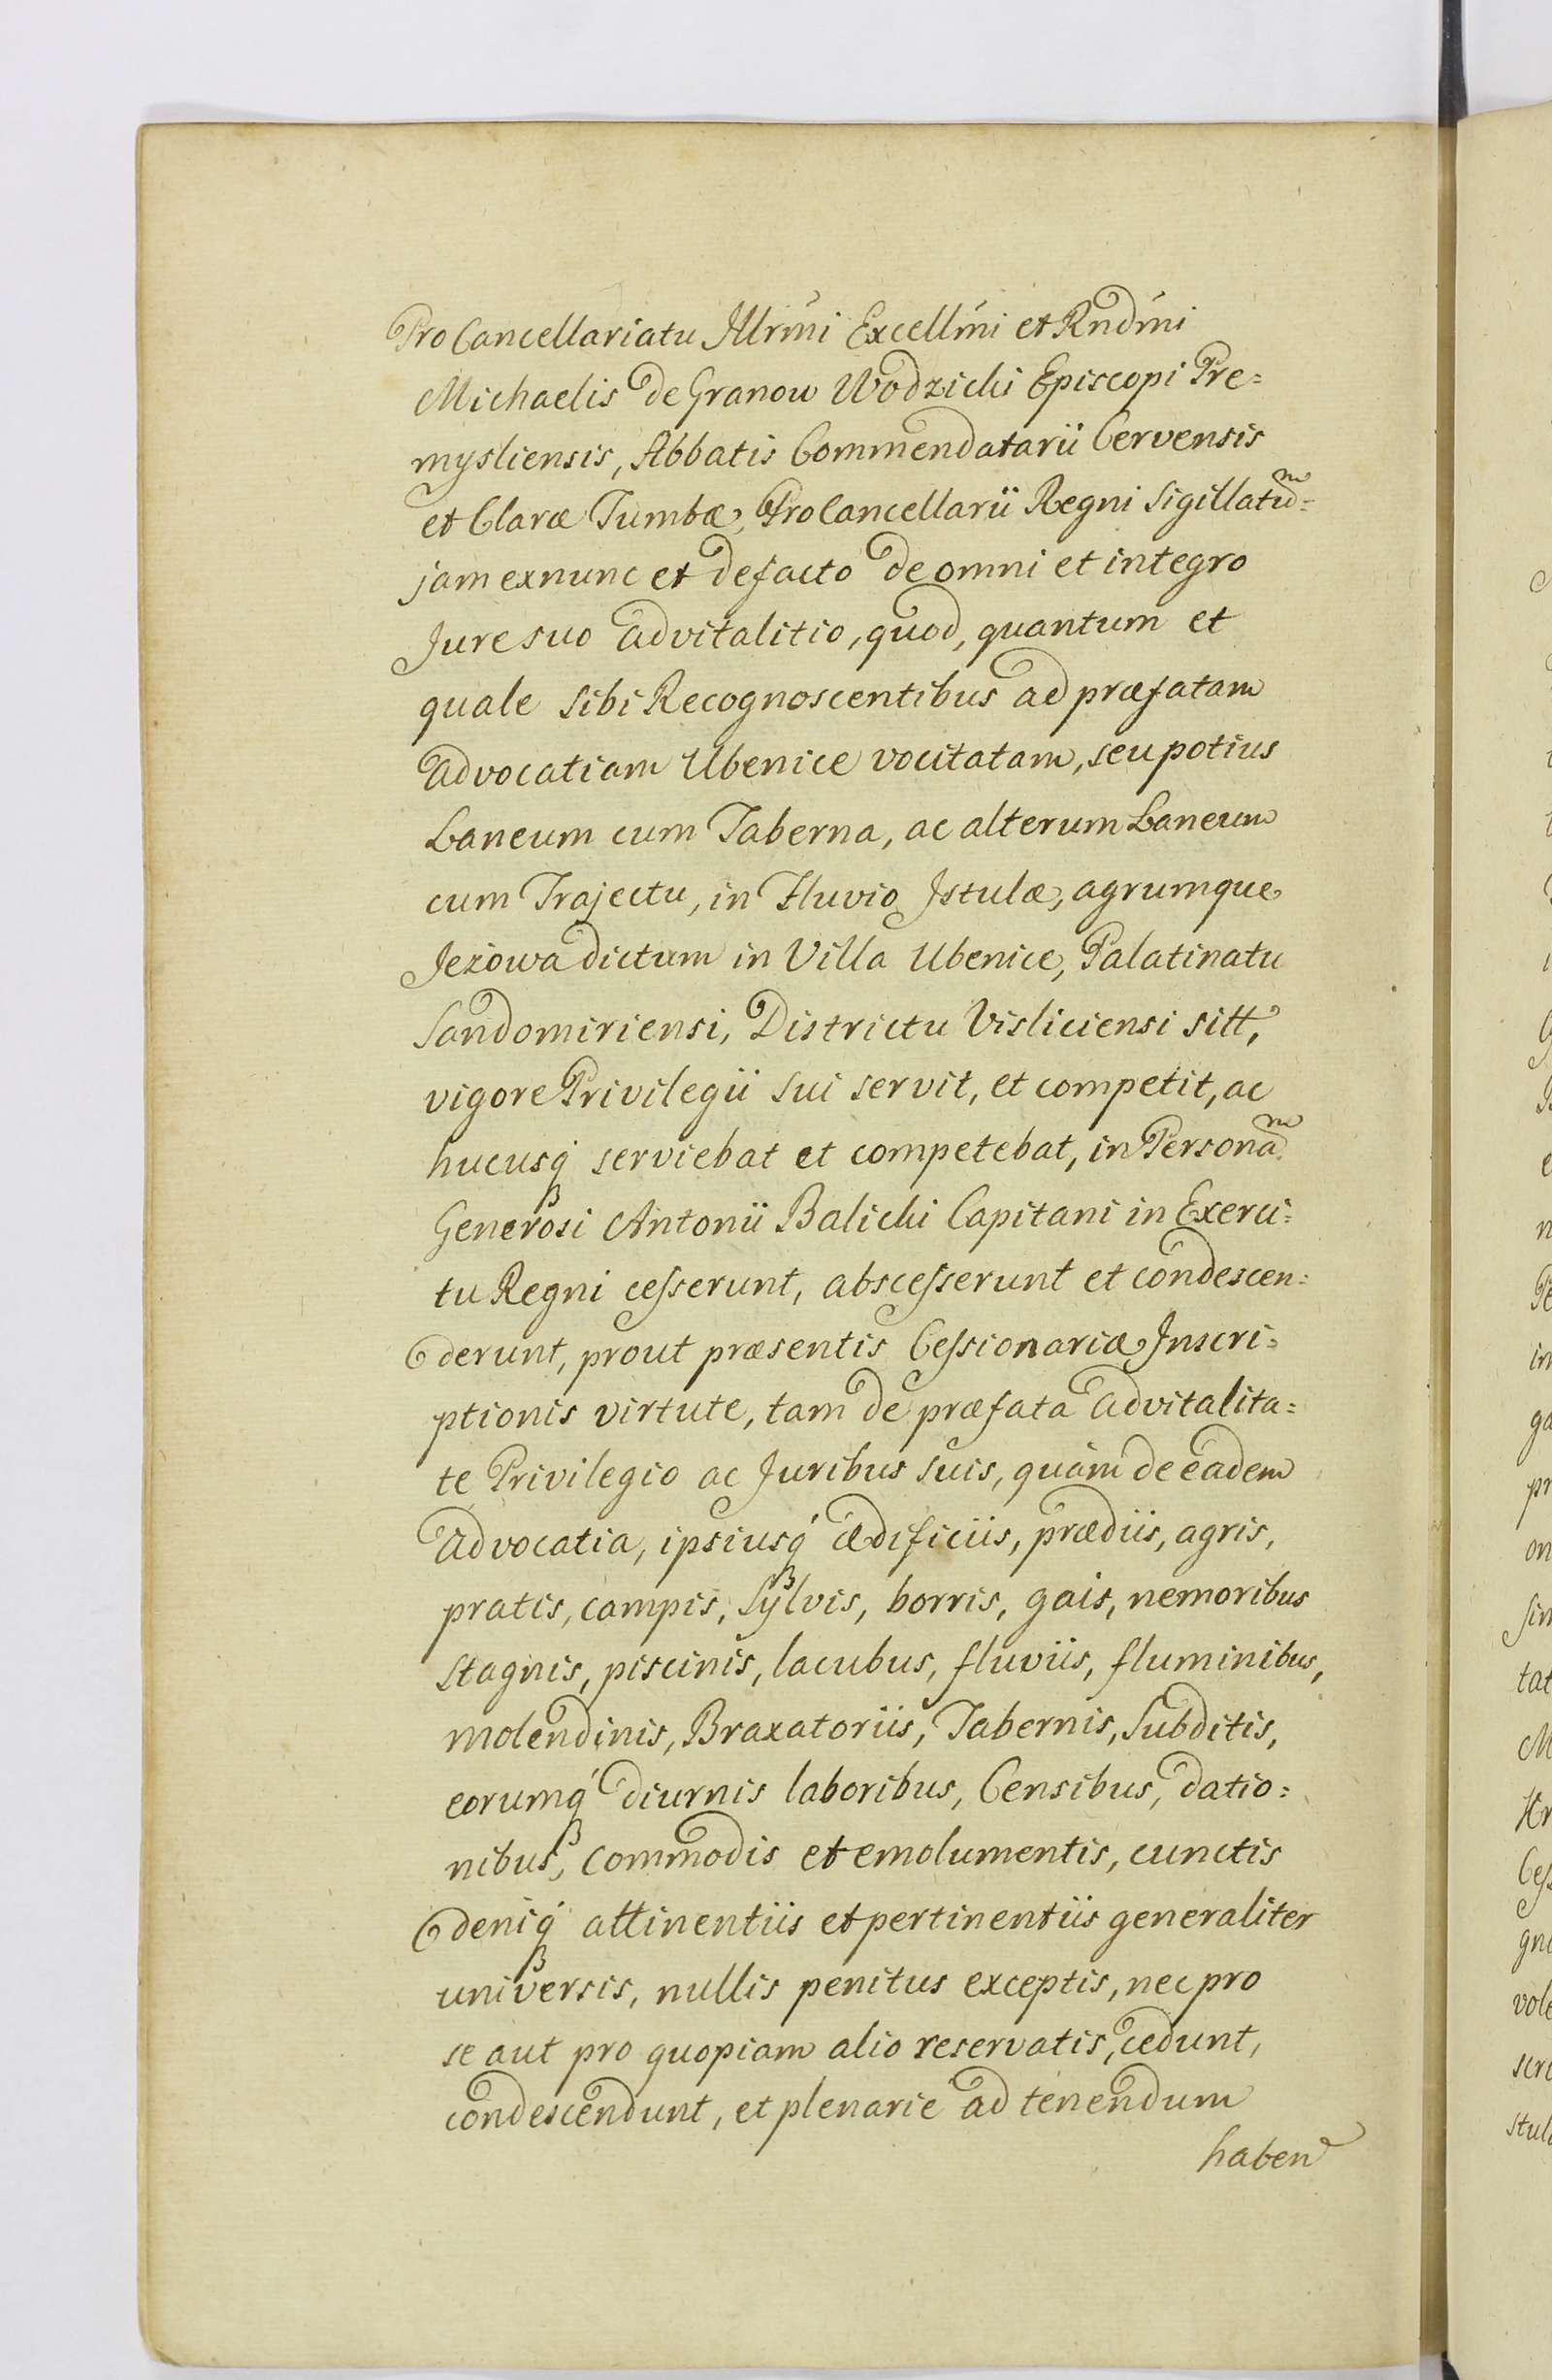 Pro Cancellariatu Illrmi Excellmi et Rndmi
Michaelis de Granow Wodzicki Episcopi Pre=
mysliensis, Abbatis Commendatarii Cervensis
et Claræ Tumbæ, ProCancellarii Regni Sigillatum=
jam exnunc et defacto de omni et integro
Jure suo advitalitio, quod, quantum et
quale sibi Recognoscentibus ad præfatam
Advocatiam Ubenice vocitatam, seu potius
Laneum cum Taberna, ac alterum Laneum
cum Trajectu, in Fluvio Istulæ, agrumque
Jezowa dictum in Villa Ubenice, Palatinatu
Sandomiriensi, Districtu Visliciensi sitt,
vigore Privilegii sui servit, et competit, ac
hucusq́ serviebat et competebat, in Personam
Generosi Antonii Balicki Capitani in Exerci=
tu Regni cesserunt, abscesserunt et condescen=
derunt, prout præsentis Cessionariæ Inscri=
ptionis virtute, tam de præfata advitalita=
te Privilegio ac Juribus suis, quàm de eadem
Advocatia, ipsiusq́ ædificiis, prædiis, agris,
pratis, campis, Sylvis, borris, gais, nemoribus
Stagnis, piscinis, lacubus, fluviis, fluminibus,
molendinis, Braxatoriis, Tabernis, Subditis,
eorumq́ diurnis laboribus, Censibus, datio=
nibus, commodis et emolumentis, cunctis
deniq́ attinentiis et pertinentiis generaliter
universis, nullis penitus exceptis, nec pro
se aut pro quopiam alio reservatis, cedunt,
condescendunt, et plenarie ad tenendum
haben